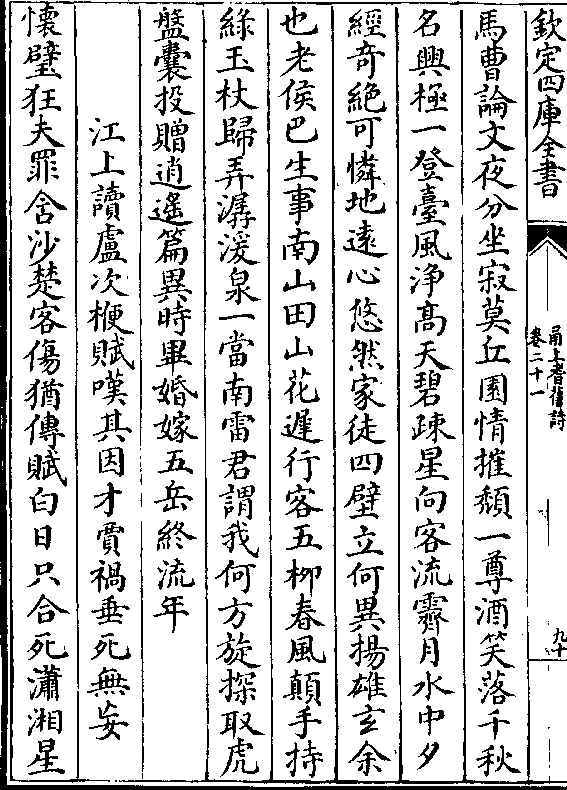 欽定四庫全書
甬上耆舊詩
卷二十一
九十
馬曹論文夜分坐寂莫丘園情摧頽一尊酒笑落千秋
名興極一登臺風浄髙天碧疎星向客流霽月水中夕
經奇絶可憐地遠心悠然家徒四壁立何異揚雄玄余
也老侯巴生事南山田山花遲行客五柳春風顛手持
綠玉杖歸弄潺湲泉一當南雷君謂我何方旋探取虎
盤囊投贈逍遙篇異時畢婚嫁五岳終流年
江上讀盧次楩賦嘆其因才賈禍垂死無妄
懐璧狂夫罪含沙楚客傷猶傳賦白日只合死瀟湘星